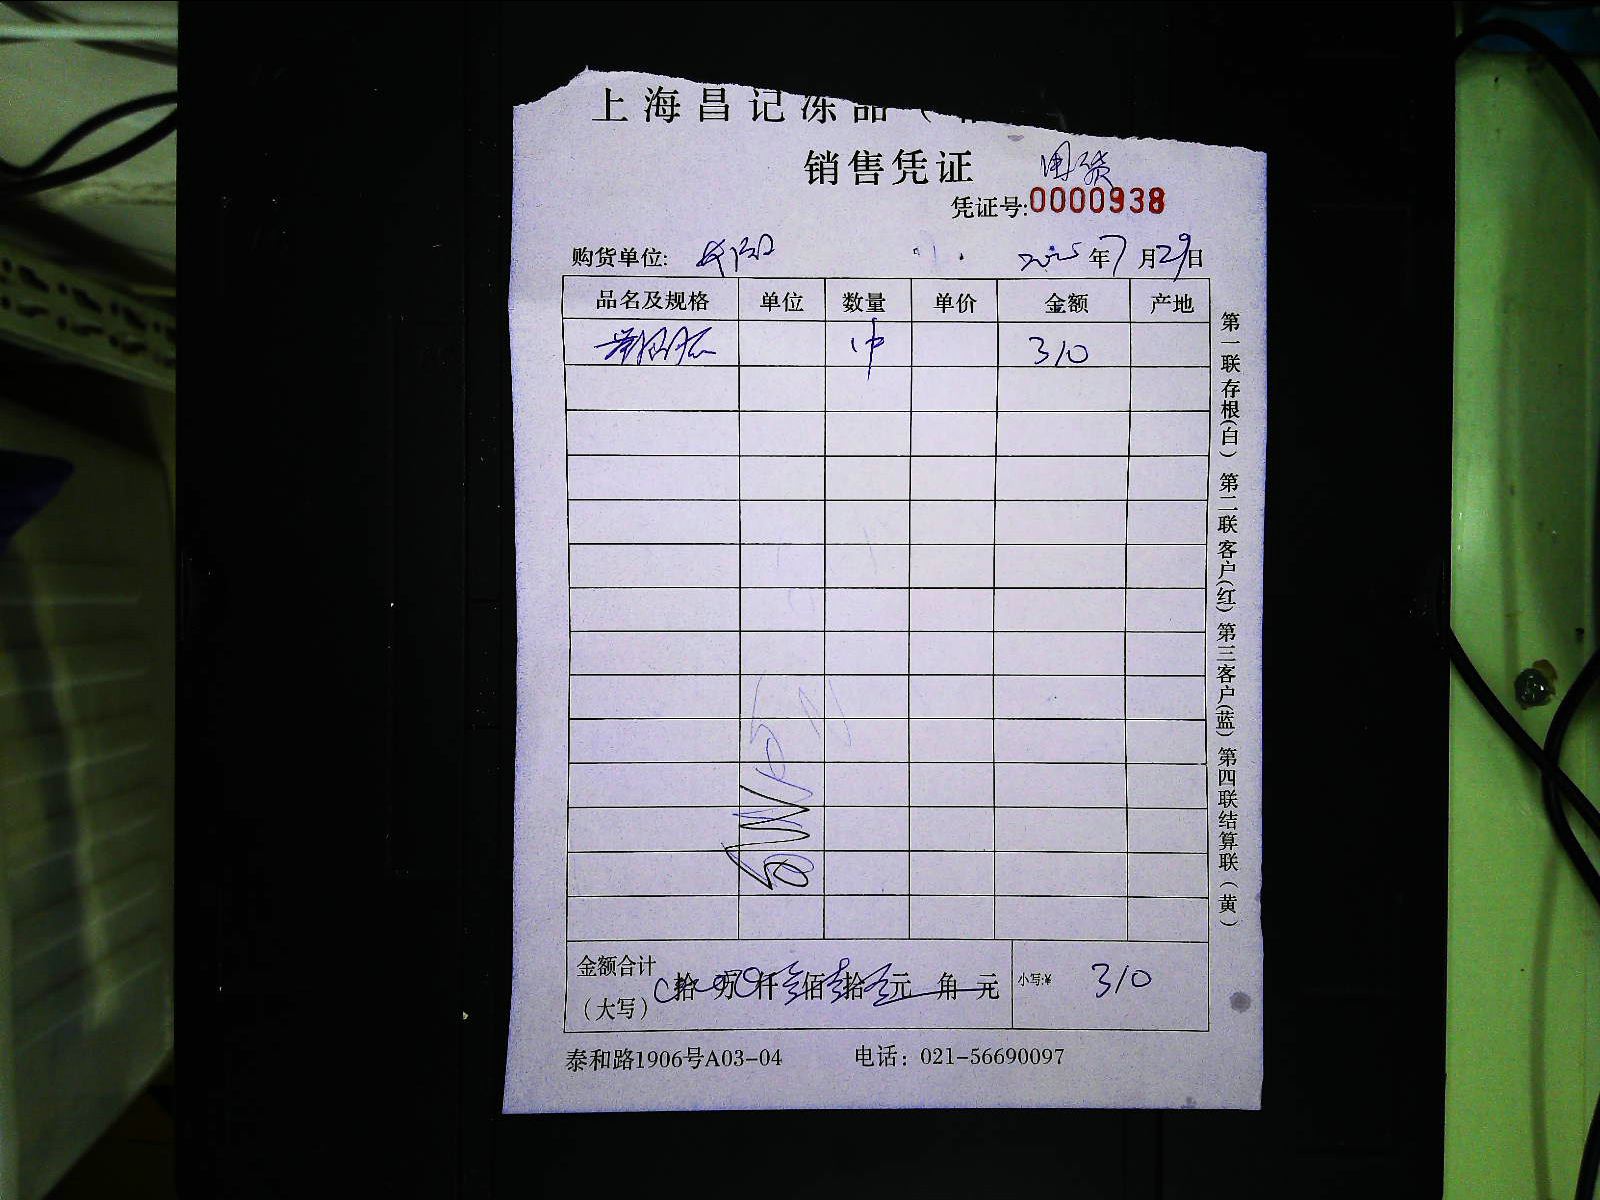 上海昌记冻品
销售凭证
凭证号:0000938
购货单位: 2025年7月29日
品名及规格 单位 数量 单价 金额 产地
310
金额合计(大写) 拾 万 仟 佰 拾 元 角 元 小写:¥ 310
泰和路1906号A03-04 电话：021-56690097
第一联存根(白) 第二联客户(红) 第三客户(蓝) 第四联结算联(黄)